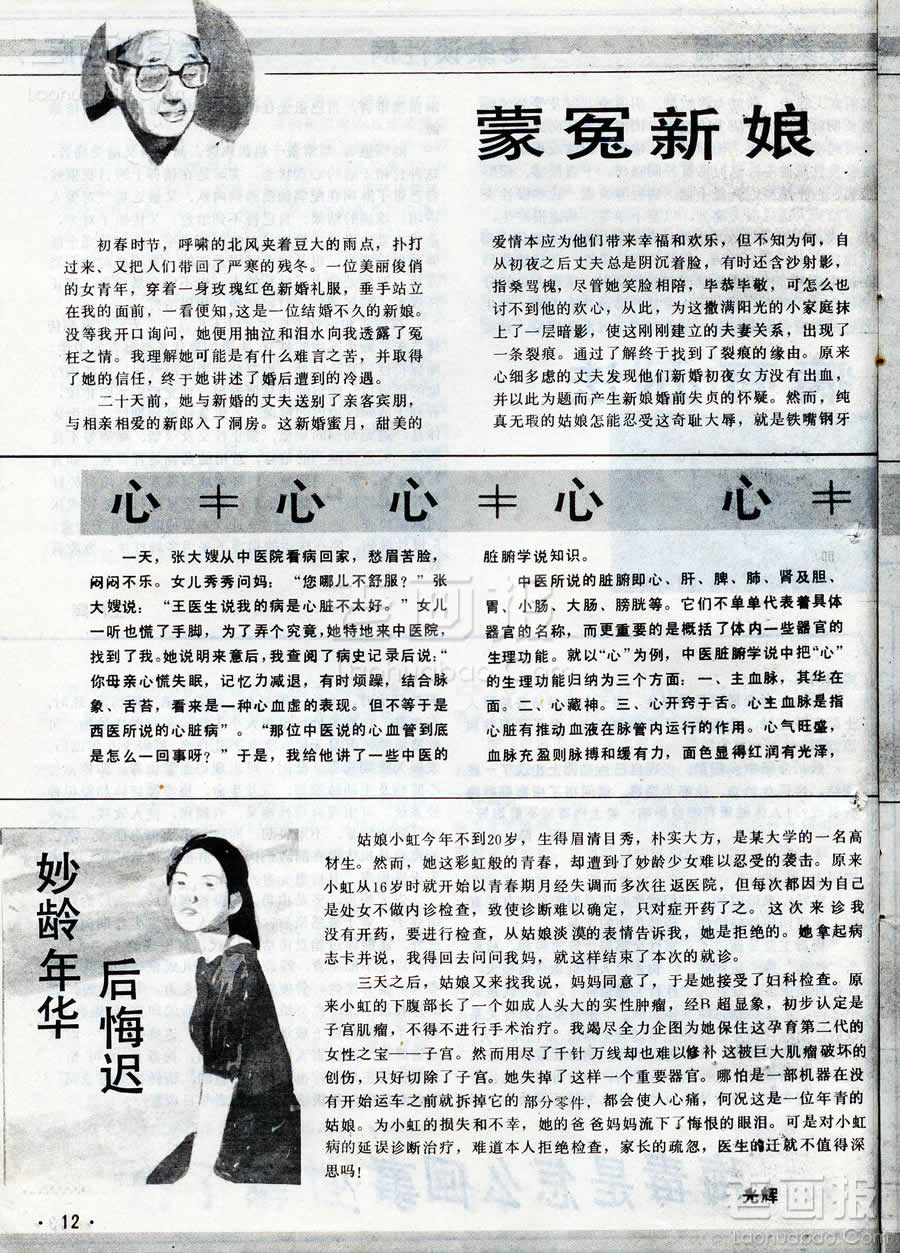 蒙冤新娘
初春时节，呼啸的北风夹着豆大的雨点，扑打
过来、又把人们带回了严寒的残冬。一位美丽俊俏
的女青年，穿着一身玫瑰红色新婚礼服，垂手站立
在我的面前，一看便知,这是一位结婚不久的新娘。
没等我开口询问，她便用抽泣和泪水向我透露了冤
枉之情。我理解她可能是有什么难言之苦，并取得
了她的信任，终于她讲述了婚后遭到的冷遇。
二十天前，她与新婚的丈夫送别了亲客宾朋，
与相亲相爱的新郎入了洞房。这新婚蜜月，甜美的
爱情本应为他们带来幸福和欢乐，但不知为何，自
从初夜之后丈夫总是阴沉着脸，有时还含沙射影，
指桑骂槐，尽管她笑脸相陪，毕恭毕敬，可怎么也
讨不到他的欢心，从此，为这撒满阳光的小家庭抹
上了一层暗影，使这刚刚建立的夫妻关系，出现了
一条裂痕。通过了解终于找到了裂痕的缘由。原来
心细多虑的丈夫发现他们新婚初夜女方没有出血，
并以此为题而产生新娘婚前失贞的怀疑。然而，纯
真无瑕的姑娘怎能忍受这奇耻大辱，就是铁嘴钢牙
心≠心 心≠心 心≠
一天，张大嫂从中医院看病回家，愁眉苦脸，
闷闷不乐。女儿秀秀问妈：“您哪儿不舒服？”张
大嫂说：“王医生说我的病是心脏不太好。”女儿
一听也慌了手脚，为了弄个究竟,她特地来中医院，
找到了我。她说明来意后，我查阅了病史记录后说：“
你母亲心慌失眠，记忆力减退，有时烦躁，结合脉
象、舌苔，看来是一种心血虚的表现。但不等于是
西医所说的心脏病”。“那位中医说的心血管到底
是怎么一回事呀？”于是，我给他讲了一些中医的
脏腑学说知识。
中医所说的脏腑即心、肝、脾、肺、肾及胆、
胃、小肠、大肠、膀胱等。它们不单单代表着具体
器官的名称，而更重要的是概括了体内一些器官的
生理功能。就以“心”为例，中医脏腑学说中把“心”
的生理功能归纳为三个方面：一、主血脉，其华在
面。二、心藏神。三、心开窍于舌。心主血脉是指
心脏有推动血液在脉管内运行的作用。心气旺盛，
血脉充盈则脉搏和缓有力，面色显得红润有光泽，
妙龄年华
后悔迟
姑娘小虹今年不到20岁，生得眉清目秀，朴实大方，是某大学的一名高
材生。然而，她这彩虹般的青春，却遭到了妙龄少女难以忍受的袭击。原来
小虹从16岁时就开始以青春期月经失调而多次往返医院，但每次都因为自己
是处女不做内诊检查，致使诊断难以确定，只对症开药了之。这次来诊我
没有开药，要进行检查，从姑娘淡漠的表情告诉我，她是拒绝的。她拿起病
志卡并说，我得回去问问我妈，就这样结束了本次的就诊。
三天之后，姑娘又来找我说，妈妈同意了，于是她接受了妇科检查。原
来小虹的下腹部长了一个如成人头大的实性肿瘤，经B超显象，初步认定是
子宫肌瘤，不得不进行手术治疗。我竭尽全力企图为她保住这孕育第二代的
女性之宝——子宫。然而用尽了千针万线却也难以修补这被巨大肌瘤破坏的
创伤，只好切除了子宫。她失掉了这样一个重要器官。哪怕是一部机器在没
有开始运车之前就拆掉它的部分零件，都会使人心痛，何况这是一位年青的
姑娘。为小虹的损失和不幸，她的爸爸妈妈流下了悔恨的眼泪。可是对小虹
病的延误诊断治疗，难道本人拒绝检查，家长的疏忽，医生的迁就不值得深
思吗！
光辉
·12·
老画报
Laonuabao.Com